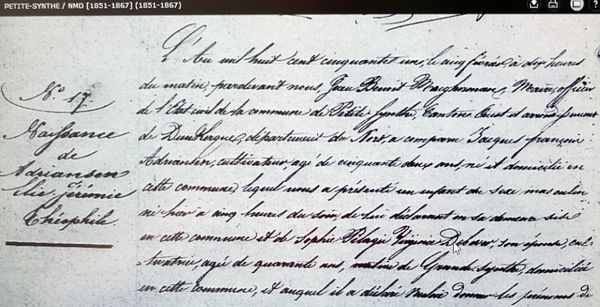 PETITE-SYNTHE / NMD [1851-1867] (1851-1867)
N.º 17
Naissance
de
Adriansen
Elie Jérémie
Théophile
L'An mil huit cent cinquante un, le cinq février à dix heures
du matin, pardevant nous, Jean Benoit Maire, officier
de l'Etat civil de la commune de Petite Synthe, Canton Ouest et arrondissement
de Dunkerque, département du Nord, a comparu Jacques françois
Adriansen, cultivateur agé de cinquante deux ans, né et domicilié en
cette commune, lequel nous a présenté un enfant de sexe masculin
né hier à cinq heures du soir, de lui déclarant en sa demeure sise
en cette commune et de Sophie Pélagie Virginie son épouse, cul-
tivatrice, agée de quarante ans, native de Grande Synthe, domiciliée
en cette commune, et auquel il a déclaré vouloir donner les prénoms de